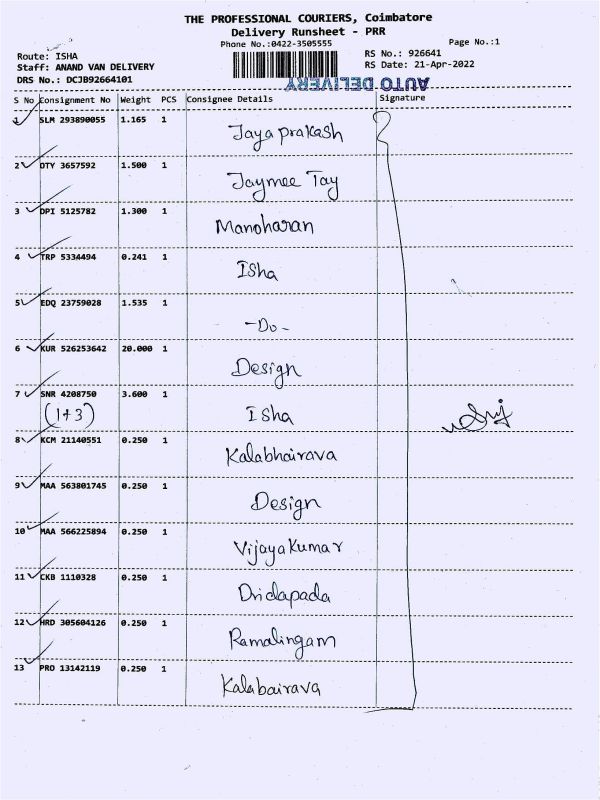 THE PROFESSIONAL COURIERS, Coimbatore
Delivery Runsheet - PRR
Phone No.:0422-3505555
Page No.:1
Route: ISHA
RS No.: 926641
Staff: ANAND VAN DELIVERY
RS Date: 21-Apr-2022
DRS No.: DCJB92664101
AUTO DELIVERY
S No Consignment No Weight PCS Consignee Details Signature
1 SLM 293890055 1.165 1 Jaya prakash
2 DTY 3657592 1.500 1 Jaymee Tay
3 DPI 5125782 1.300 1 Manoharan
4 TRP 5334494 0.241 1 Isha
5 EDQ 23759028 1.535 1 -Do-
6 KUR 526253642 20.000 1 Design
7 SNR 4208750 3.600 1 Isha
(1+3)
8 KCM 21140551 0.250 1 Kalabhairava
9 MAA 563801745 0.250 1 Design
10 MAA 566225894 0.250 1 Vijayakumar
11 CKB 1110328 0.250 1 Dridapada
12 HRD 305604126 0.250 1 Ramalingam
13 PRO 13142119 0.250 1 Kalabairava